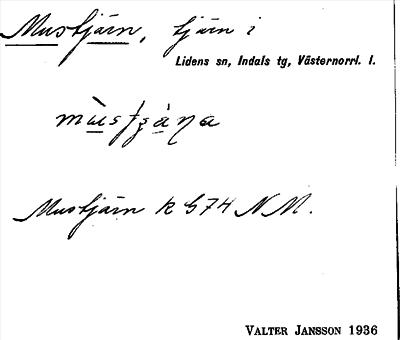 Mustjärn, tjärn i
Lidens sn, Indals tg, Västernorrl. l.
Mustjärn K 574 N M.
VALTER JANSSON 1936